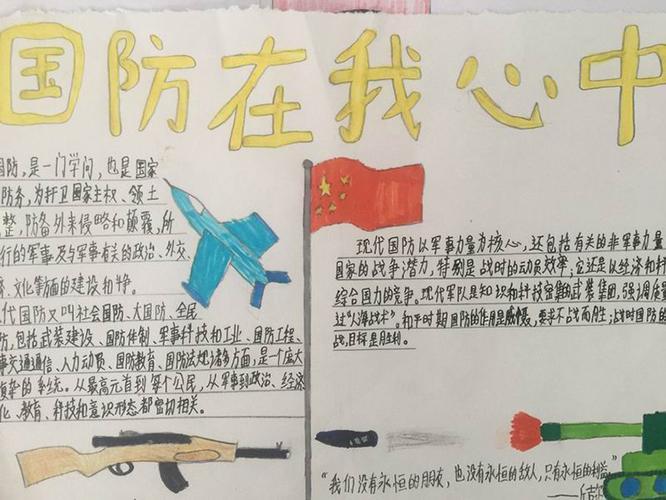 国防在我心中
国防，是一门学问，也是国家
防务，为捍卫国家主权、领土
整，防备外来侵略和颠覆，所
行的军事及与军事有关的政治、外交、
、文化等方面的建设和斗争。
代国防又叫社会国防、大国防、全民
防，包括武装建设、国防体制、军事科技和工业、国防工程、
事交通通信、人力动员、国防教育、国防法规诸多方面，是一个庞大
复杂的系统。从最高元首到每个公民，从军事到政治、经济
化、教育、科技和意识形态都密切相关。
现代国防以军事力量为核心，还包括有关的非军事力量
国家的战争潜力，特别是战时的动员效率，它还是以经济和科
综合国力的竞争。现代军队是知识和科技密集的武装集团，强调质量
过“人海战术”。和平时期国防的作用是威慑，要求不战而胜；战时国防的
战，目标是胜利。
“我们没有永恒的朋友，也没有永恒的敌人，只有永恒的利益”